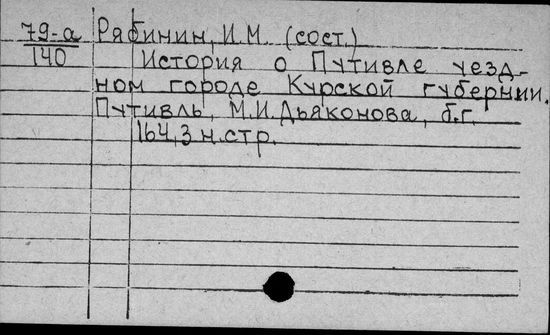 79-а Рябинин, И.М. (сост.)
140 История о Путивле уезд-
ном городе Курской губернии.
Путивль, М.И.Дьяконова, б.г.
164,3 н.стр.